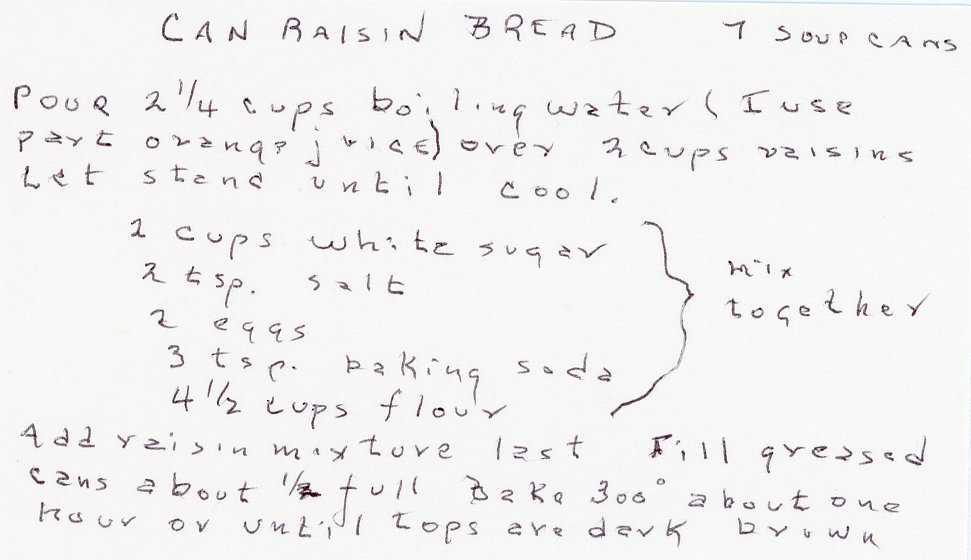 CAN RAISIN BREAD 7 SOUP CANS
Pour 2 1/4 cups boiling water (I use
part orange juice) over 2 cups raisins
Let stand until cool.
2 cups white sugar
2 tsp. salt
2 eggs
3 tsp. baking soda
4 1/2 cups flour
mix
together
Add raisin mixture last Fill greased
cans about 1/2 full Bake 300° about one
hour or until tops are dark brown